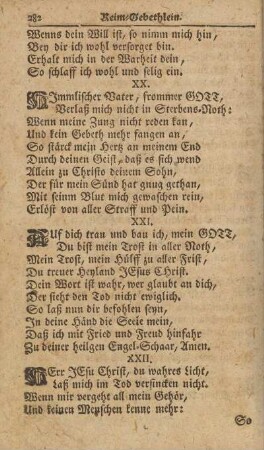 282 Reim-Gebethlein.
Wenns dein Will ist, so nimm mich hin,
Bey dir ich wohl versorget bin.
Erhalt mich in der Warheit dein,
So schlaff ich wohl und selig ein.
XX.
HImmlischer Vater, frommer GOTT,
Verlaß mich nicht in Sterbens-Noth:
Wenn meine Zung nicht reden kan,
Und kein Gebeth mehr fangen an,
So stärck mein Hertz an meinem End
Durch deinen Geist, daß es sich wend
Allein zu Christo deinem Sohn,
Der für mein Sünd hat gnug gethan,
Mit seinm Blut mich gewaschen rein,
Erlößt von aller Straff und Pein.
XXI.
AUf dich trau und bau ich, mein GOTT,
Du bist mein Trost in aller Noth,
Mein Trost, mein Hülff zu aller Frist,
Du treuer Heyland JEsus CHrist.
Dein Wort ist wahr, wer glaubt an dich,
Der sieht den Tod nicht ewiglich.
So laß nun dir befohlen seyn,
In deine Händ die Seele mein,
Daß ich mit Fried und Freud hinfahr
Zu deiner heilgen Engel-Schaar, Amen.
XXII.
HErr JEsu Christ, du wahres Licht,
Laß mich im Tod versincken nicht.
Wenn mir vergeht all mein Gehör,
Und keinen Menschen kenne mehr:
So